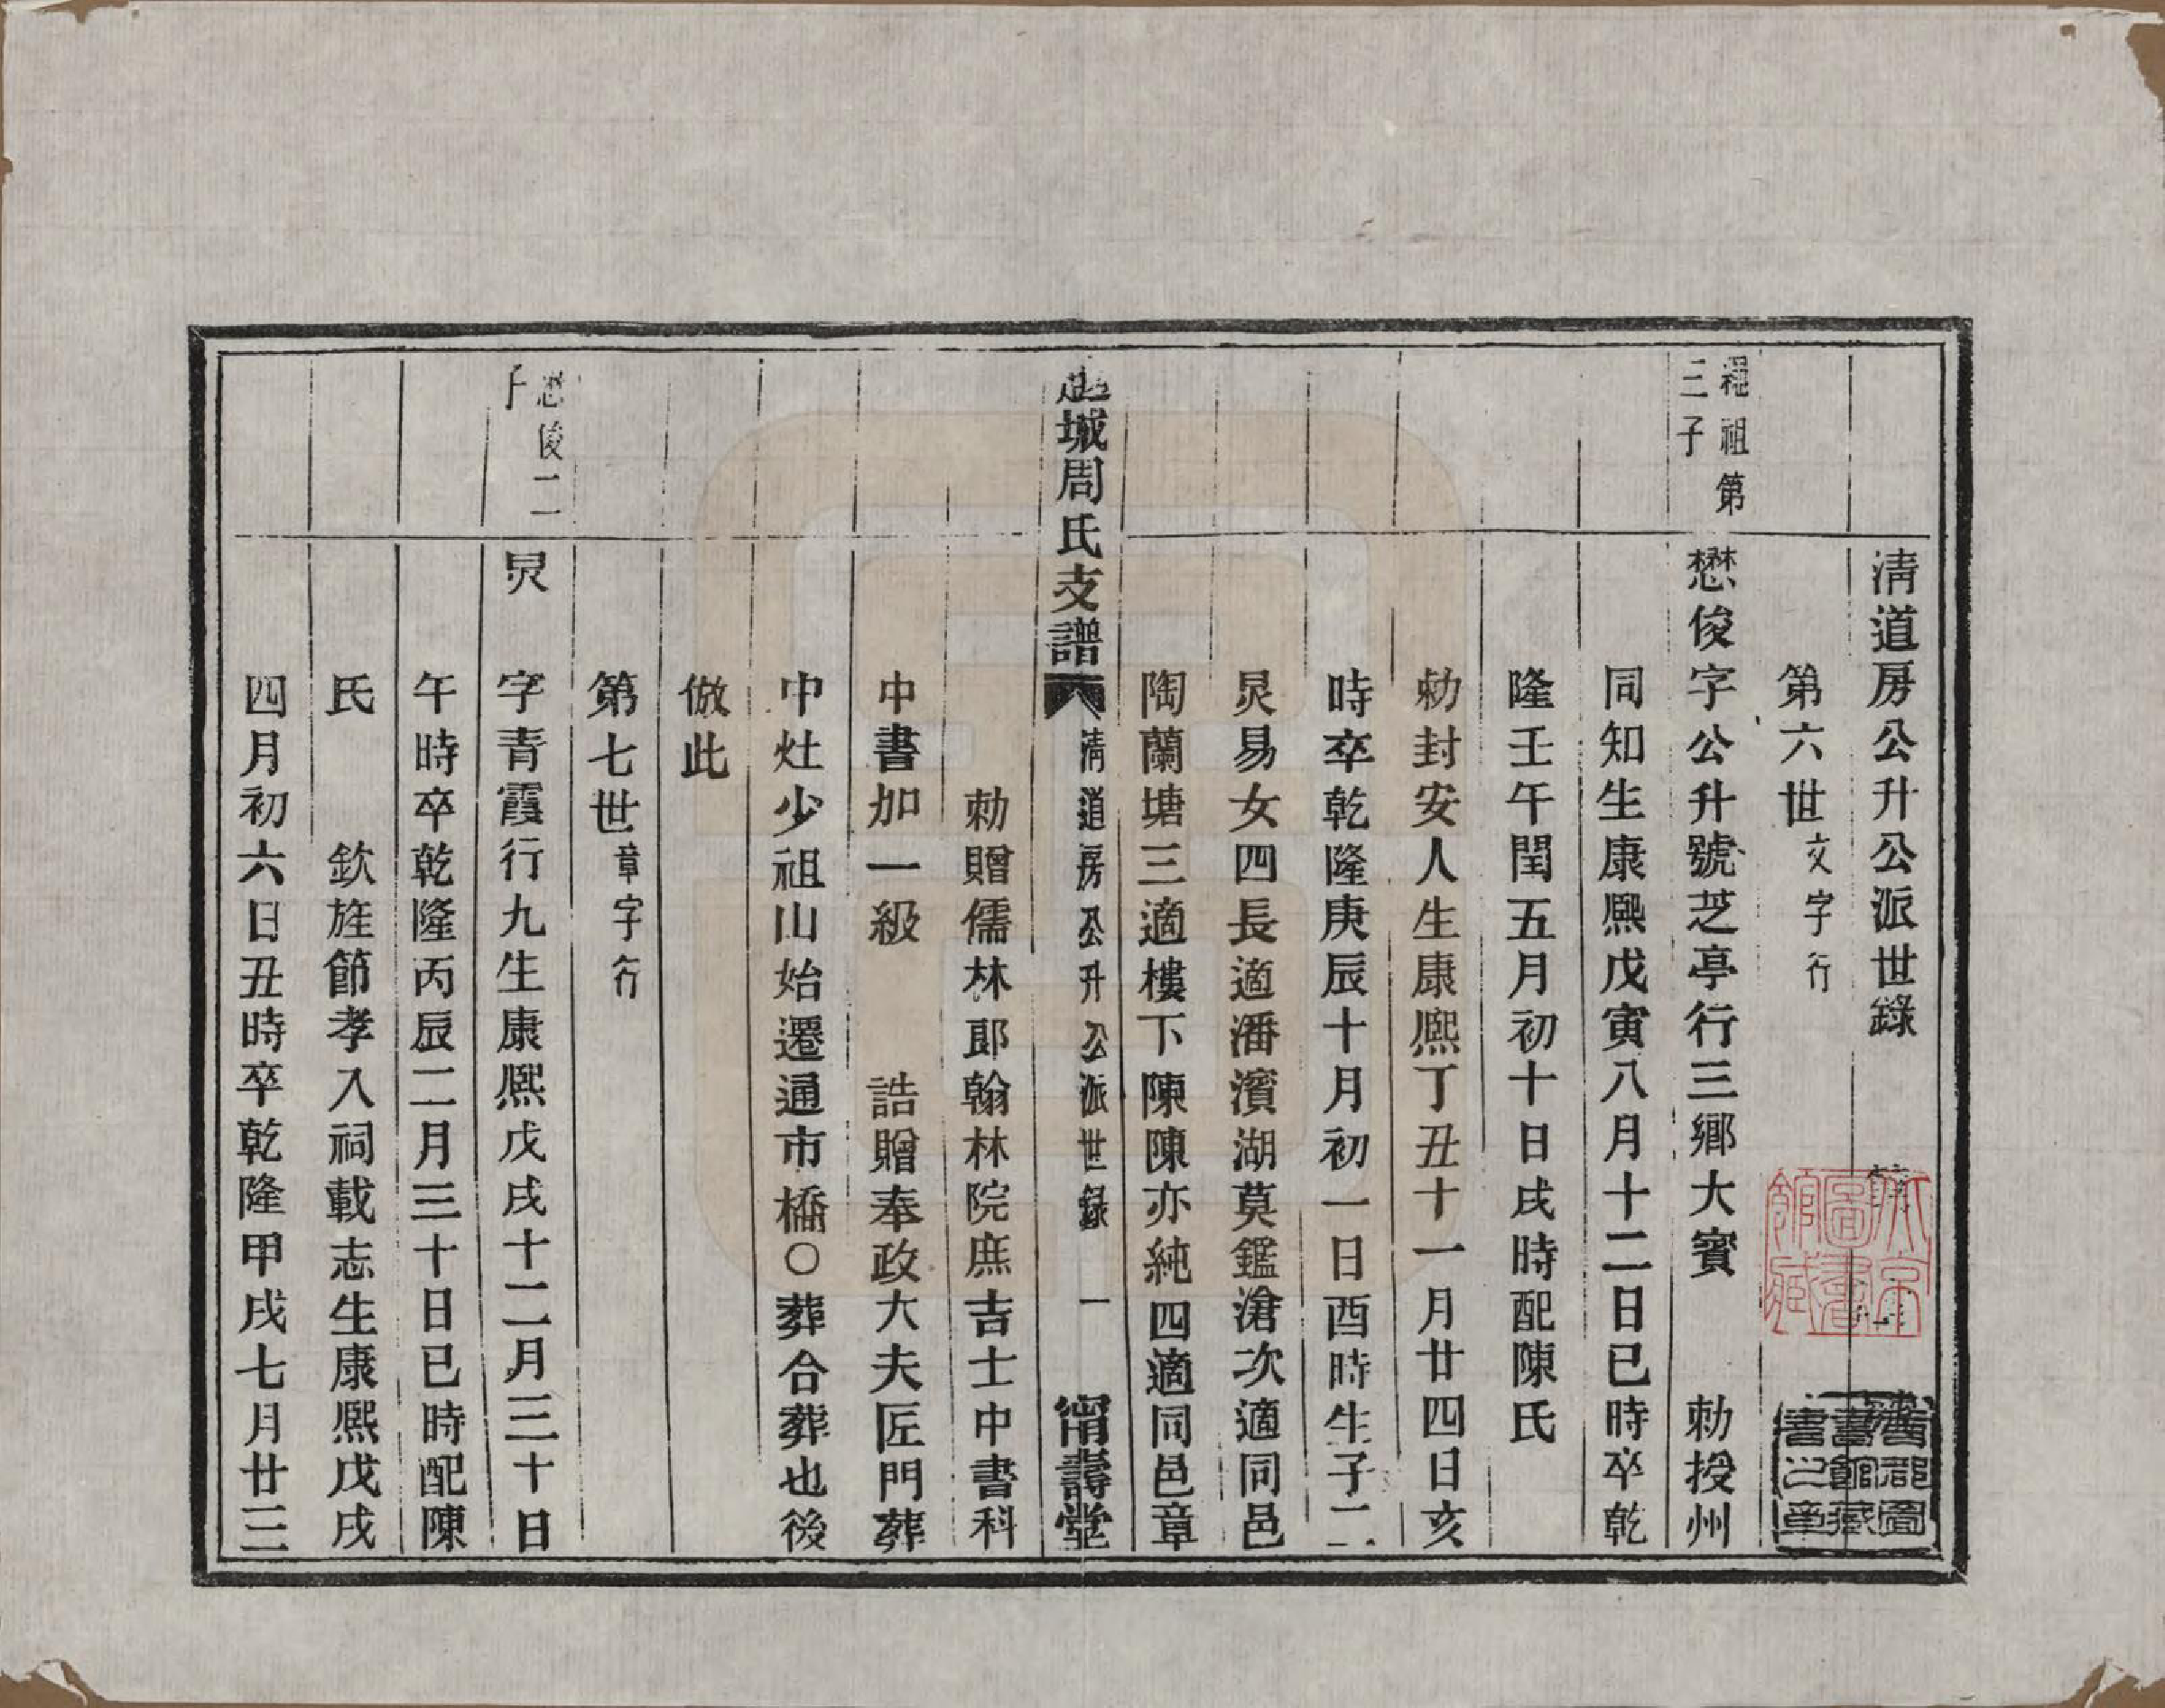 清道房公升公派世錄
第六世文字行
繩祖第三子
懋俊字公升號芝亭行三鄉大賓　勅授州
同知生康熙戊寅八月十二日巳時卒乾
隆壬午閏五月初十日戌時配陳氏
勅封安人生康熙丁丑十一月廿四日亥
時卒乾隆庚辰十月初一日酉時生子二
炅易女四長適潘濱湖莫鑑滄次適同邑
陶蘭塘三適樓下陳陳亦純四適同邑章
城周氏支譜　清道房公升公派世錄　一　甯壽堂
勅贈儒林郎翰林院庶吉士中書科
中書加一級　誥贈奉政大夫匠門葬
中灶少祖山始遷通市橋○葬合葬也後
倣此
第七世章字行
懋俊二子
炅　字青霞行九生康熙戊戌十二月三十日
午時卒乾隆丙辰二月三十日巳時配陳
氏　欽旌節孝入祠載志生康熙戊戌
四月初六日丑時卒乾隆甲戌七月廿三